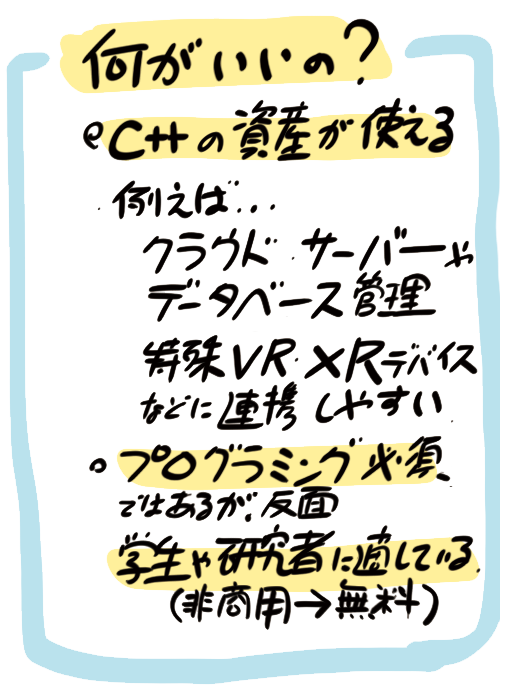 何がいいの?
C++の資産が使える
例えば...
クラウド サーバーや
データベース管理
特殊VR・XRデバイス
などに連携しやすい
プログラミング必須、
ではあるが、反面
学生や研究者に適している
(非商用→無料)